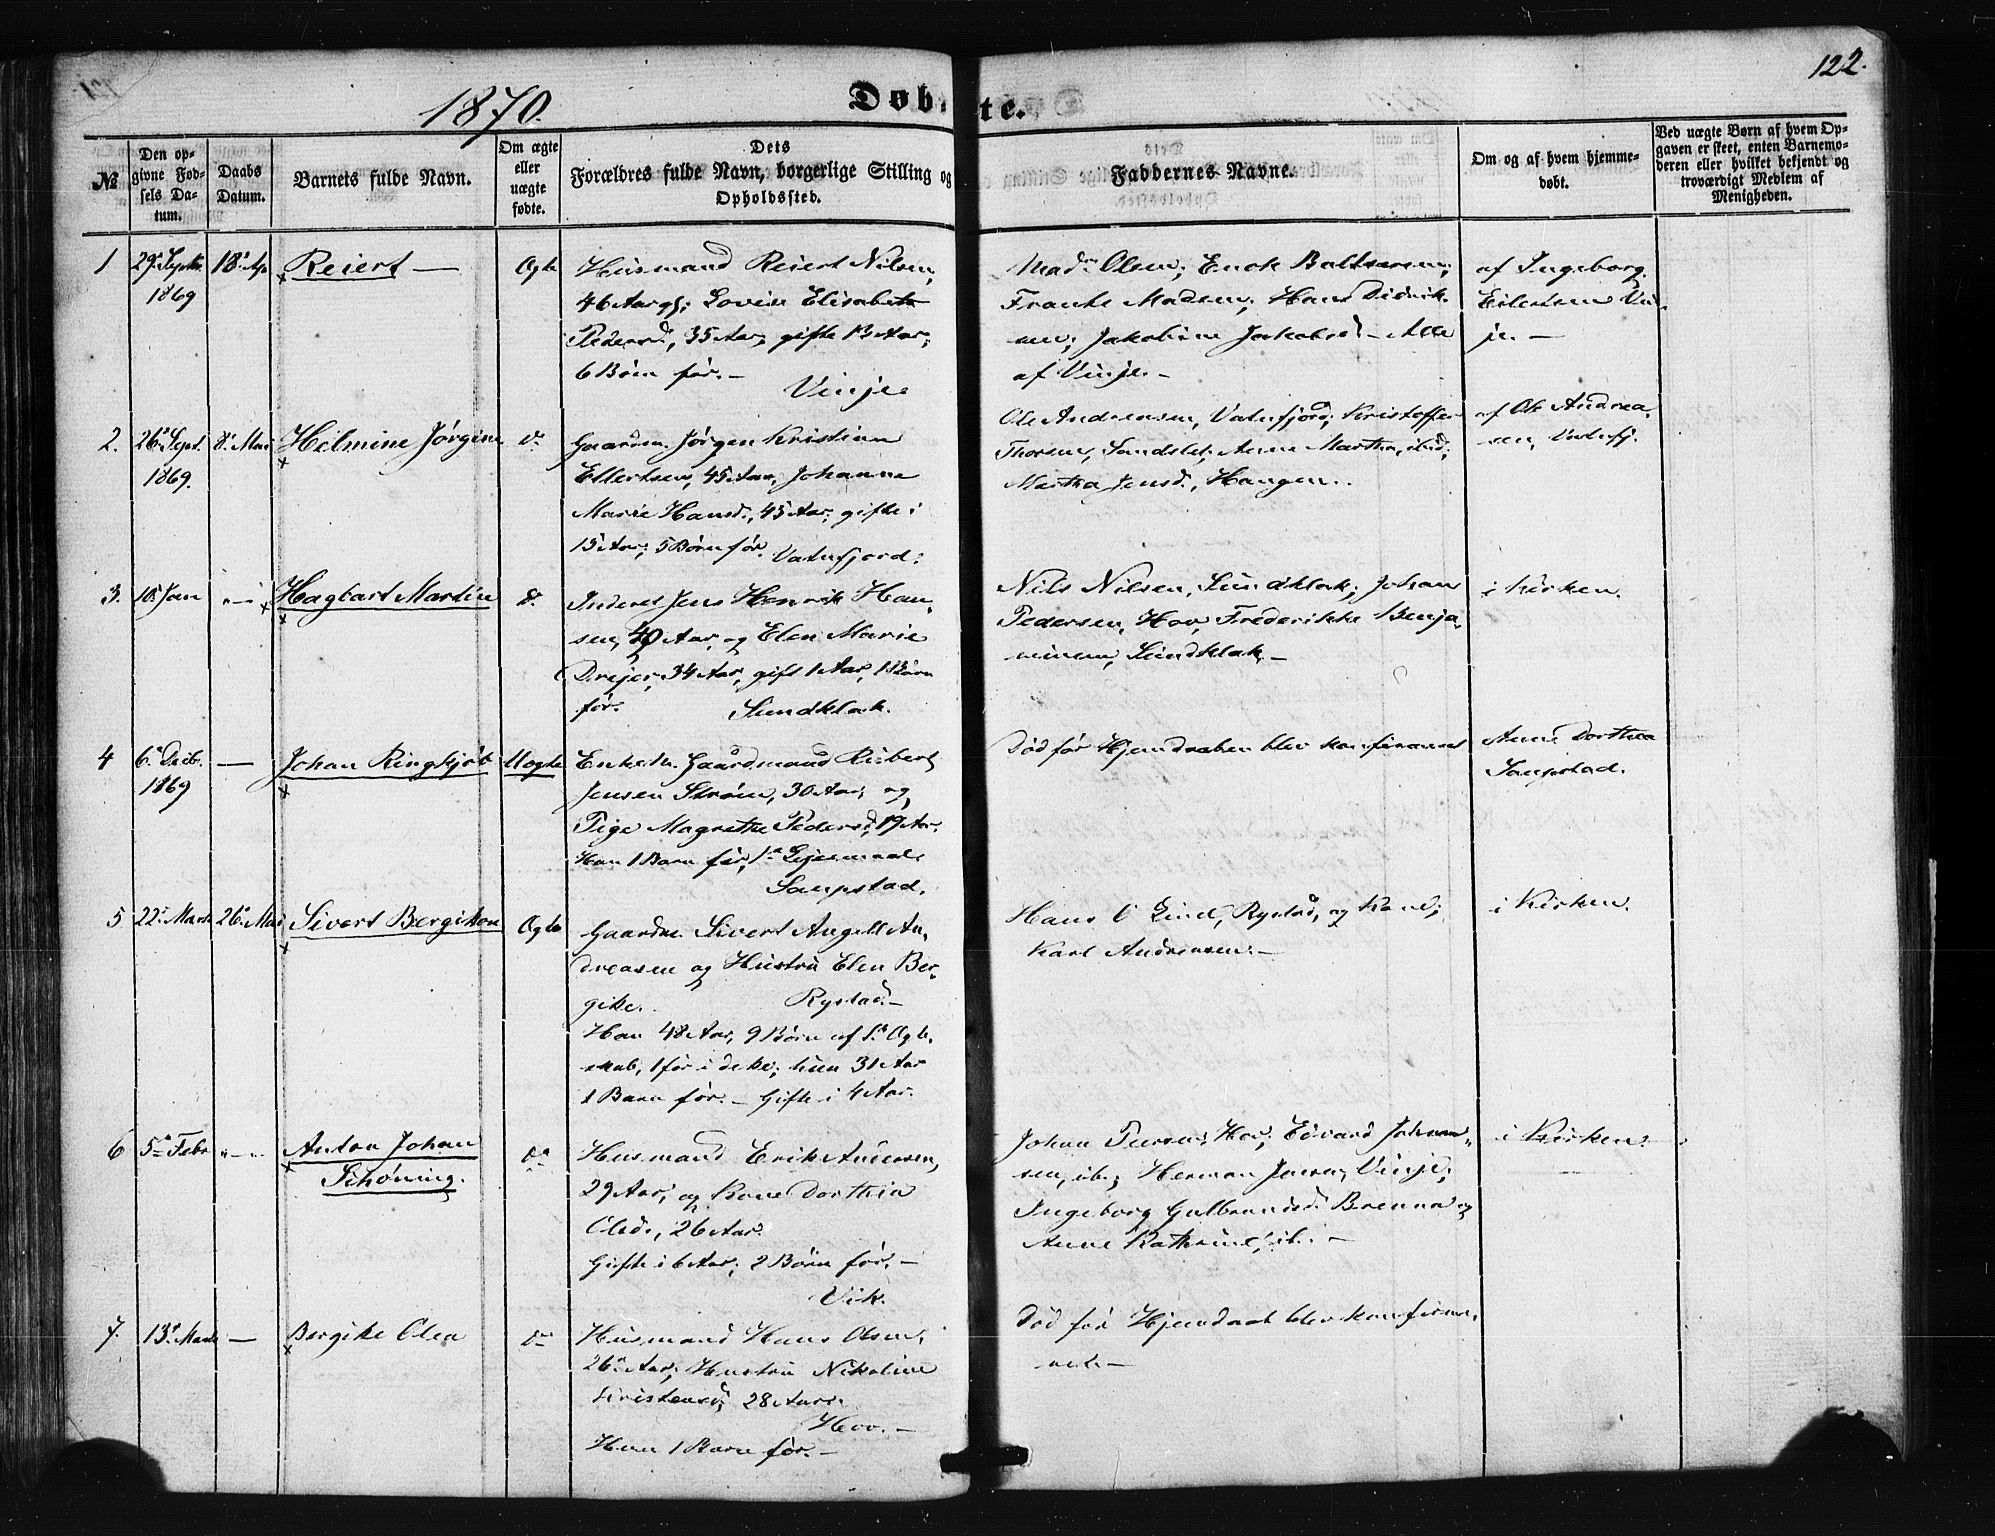 122.
1870.
Døbte.
№
Den opgivne Fødsels Datum.
Daabs Datum.
Barnets fulde Navn.
Om ægte eller uægte fødte.
Dets Forældres fulde Navn, borgerlige Stilling og Opholdssted.
Faddernes Navne.
Om og af hvem hjemmedøbt.
Ved uægte Børn af hvem Opgaven er skeet, enten Barnemoderen eller hvilket bekjendt og troværdigt Medlem af Menigheden.
1
29 Septbr.
1869
18 Ap
Reiert —
Ægte
Husmand Reiert Nilsen,
46 Aar, Lovise Elisabeth
Pedersd, 35 Aar, gifte 13 Aar,
6 Børn før. —
Vinje
Olsen; Enok Baltsersen;
Madsen; Hans Didrik-
sen; Jakobine Jakobsd. — Alle
af Vinje. —
af Ingeborg
Eilertsen Vin-
je. —
2.
26 Sept.
1869.
8 Mai
Hilmine Jørgine
do
Gaardm. Jørgen Kristian
Ellertsen, 45 Aar, Johanna
Marie Hansd., 45 Aar, gifte i
15 Aar; 5 Børn før. Vatnfjord.
Ole Andreasen, Vatnfjord; Kristoffer
Thorsen, Sandslet; Anne Martha, ibid;
Martha Jensd., Haugen.
af Ole Andrea-
sen, Vatnfj.
3.
10 Jan
Hagbart Martin
do
Inderst Jens Henrik Han-
sen, 40 Aar, og Elen Marie
Drejer, 34 Aar, gift 1 Aar, 1 Barn
før. Sundklak.
Nils Nilsen, Sundklak; Johan
Pedersen, Hov, Frederikke Benja-
minsen, Sundklak. —
i Kirken.
4
6 Decbr.
1869
—
Johan Ringkjøb
Uægte
Enkem. Gaardmand Ribert
Jensen Strøm, 30 Aar, og
Pige Magrethe Pedersd, 19 Aar.
Han 1 Barn før, 1ste Leiermaal.
Saupstad.
Død før Hjemdaaben blev konfirmeret
Anne Dorthea
Saupstad.
5
22 Marts
26 Mai
Sivert Bergiton
Ægte
Gaardm. Sivert Angell An-
dreasen og Hustru Elen Ber-
gitte. Rystad. —
Han 48 Aar, 9 Børn af 1ste Ægte-
skab, 1 før i dette; hun 31 Aar
1 Barn før. — Gifte i 4 Aar.
Hans Lind, Rystad, og Kone;
Karl Andreasen. —
i Kirken.
6
5 Febr
Anton Johan
Schøning.
do
Husmand Erik Andersen,
29 Aar, og Kone Dorthea
Olsd., 26 Aar.
Gifte i 6 Aar; 2 Børn før. —
Vik.
Johan Pedersen, Hov; Edvard Johan-
sen, ib; Herman Jensen, Vinje;
Ingeborg Gulbrandsd. Brenna og
Anne Kathrine, ib. —
i Kirken.
7.
13 Marts
—
Bergitte Olea
do
Husmand Hans Olsen,
26 Aar, Hustru Nikoline
Kristensd, 28 Aar.
Hov. —
Hun 1 Barn før. —
Død før Hjemdaab blev konfirme-
ret. —